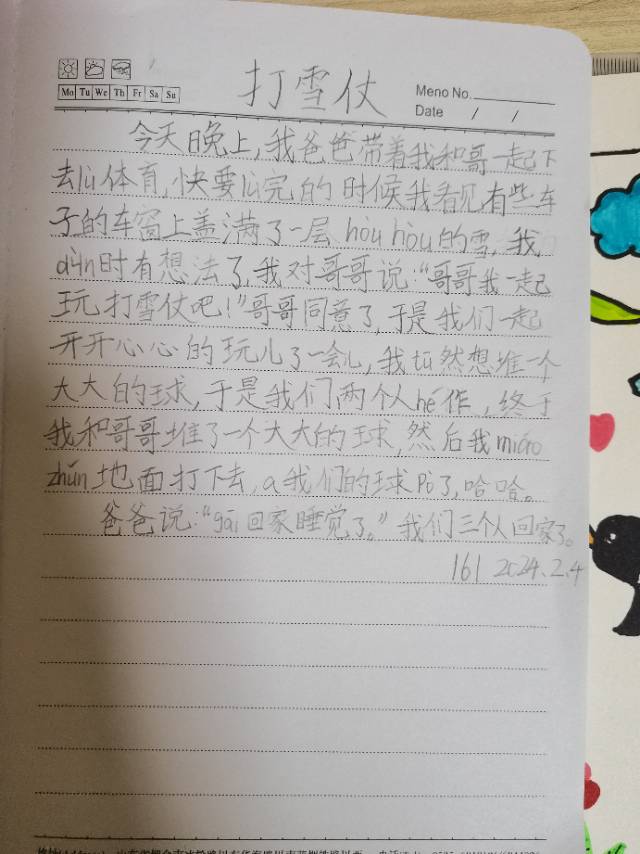 打雪仗
Meno No.
Mo Tu We Th Fr Sa Su
Date / /
今天晚上,我爸爸带着我和哥一起下
去liù体育,快要liù完的时候我看见有些车
子的车窗上盖满了一层hòu hòu的雪,我
dùn时有想法了,我对哥哥说:“哥哥我一起
玩打雪仗吧!”哥哥同意了,于是我们一起
开开心心的玩儿了一会儿,我tū然想堆一个
大大的球,于是我们两个人hé作,终于
我和哥哥堆了一个大大的球,然后我miáo
zhǔn地面打下去,a我们的球Pò了,哈哈。
爸爸说:“gāi回家睡觉了。”我们三个人回家了。
161 2024.2.4